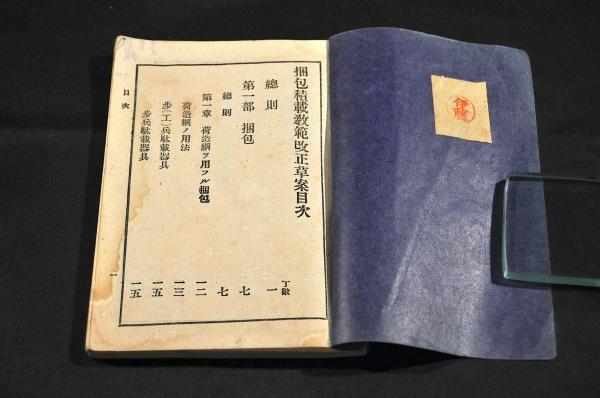 伊藤
梱包積載教範改正草案目次
丁数
總則 一
第一部 梱包 七
總則 七
第一章 荷造綱ヲ用フル梱包 一二
荷造綱ノ用法 一三
步(工)兵駄載器具 一五
步兵駄載器具 一五
目次
一